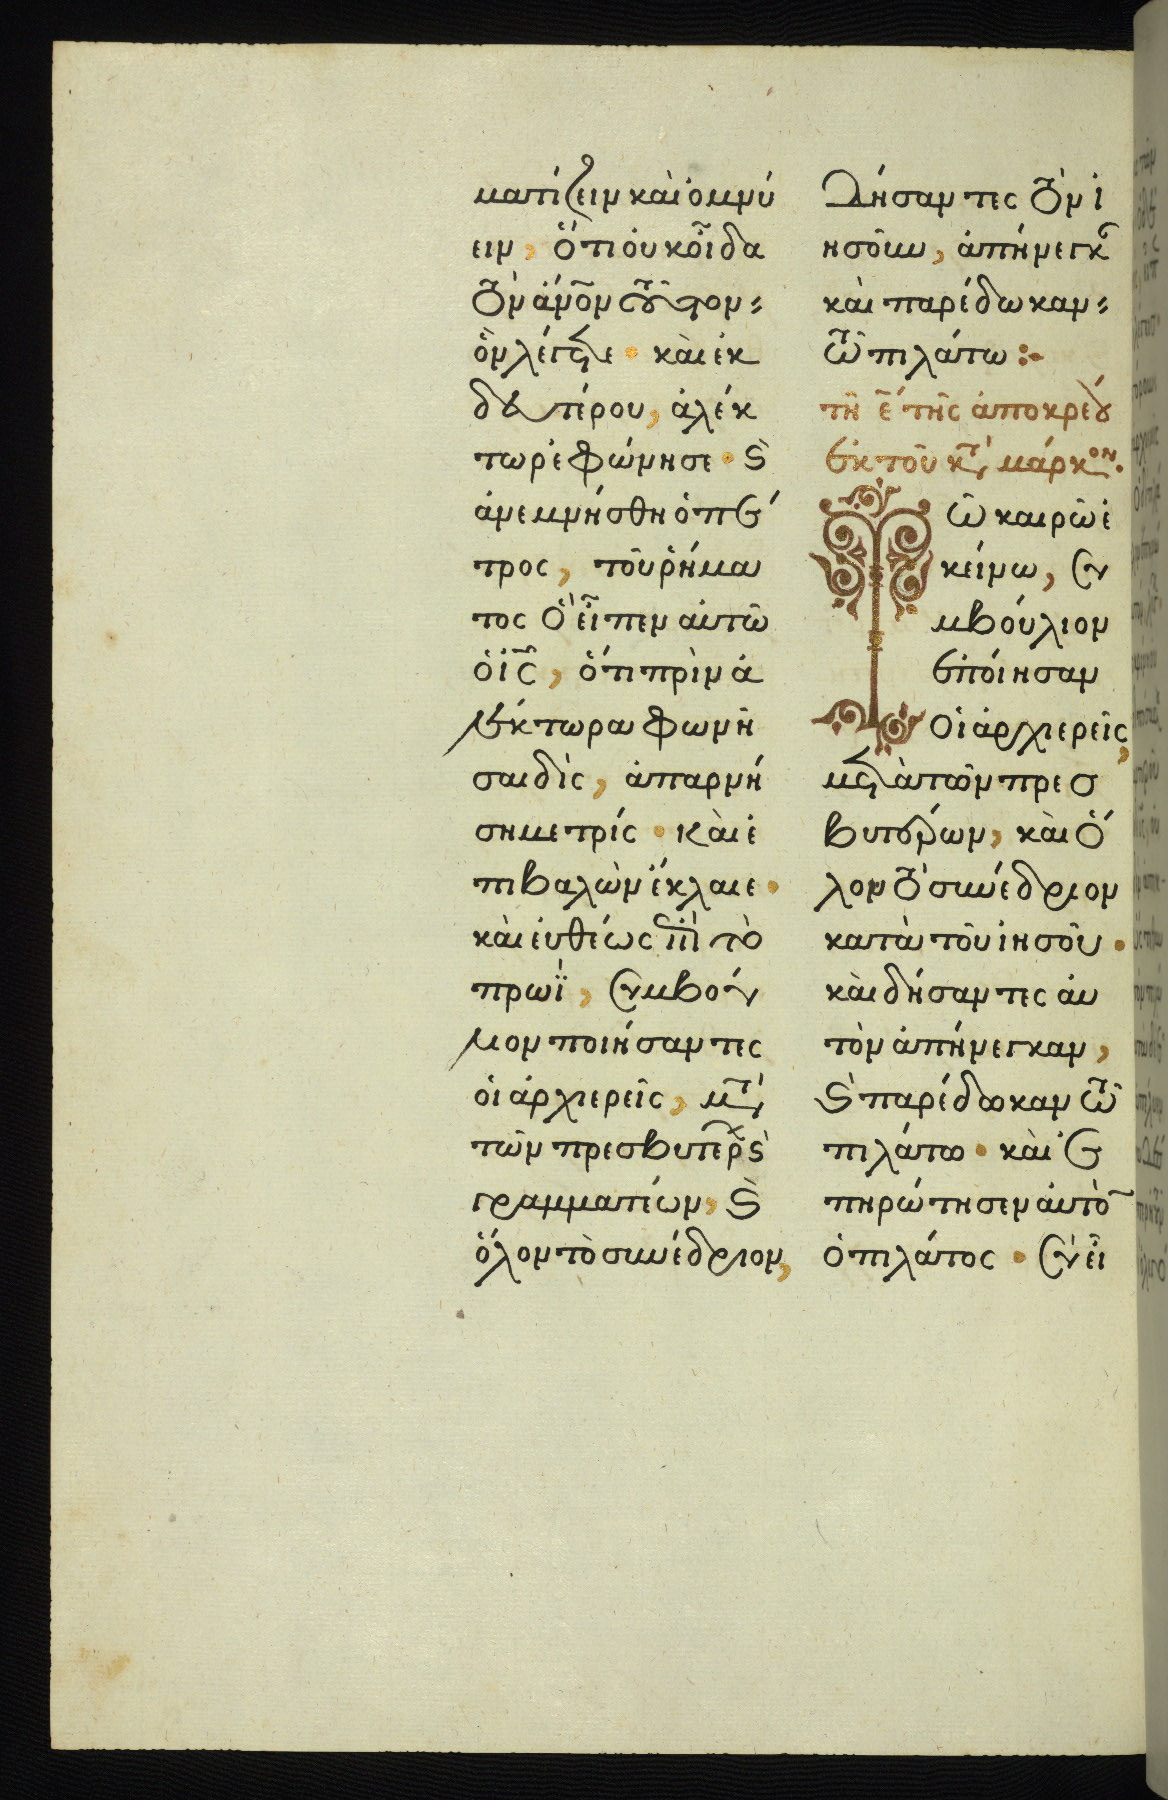 ματίζειν καὶ ὀμνύ
ειν, ὅτι οὐκ οἶδα
τὸν ἄνον τοῦτον
ὃν λέγετε· καὶ ἐκ
δευτέρου, ἀλέκ
τωρ ἐφώνησε· καὶ
ἀνεμνήσθη ὁ πέ
τρος, τοῦ ῥήμα
τος οὗ εἶπεν αὐτῶ
ὁ ἰς, ὅτι πρὶν ἀ
λέκτορα φωνῆ
σαι δὶς, ἀπαρνή
ση με τρίς· καὶ ἐ
πιβαλὼν ἔκλαιε·
καὶ εὐθέως ἐπὶ τὸ
πρωῒ, συμβού
λιον ποιήσαντες
οἱ ἀρχιερεῖς, μετὰ
τῶν πρεσβυτέρων καὶ
γραμματέων, καὶ
ὅλον τὸ συνέδριον,
δήσαντες τὸν ἰ
ησοῦν, ἀπήνεγκαν
καὶ παρέδωκαν
τῶ πιλάτω:-
τῆ ε τῆς ἀποκρέου
ἐκ τοῦ κατὰ μάρκον.
Τῶ καιρῶ ἐ
κείνω, συ
μβούλιον
ἐποίησαν
οἱ ἀρχιερεῖς,
μετὰ τῶν πρεσ
βυτέρων, καὶ ὅ
λον τὸ συνέδριον
κατὰ τοῦ ἰησοῦ·
καὶ δήσαντες αὐ
τὸν ἀπήνεγκαν,
καὶ παρέδωκαν τῶ
πιλάτω· καὶ ἐ
πηρώτησεν αὐτὸν
ὁ πιλάτος· σὺ εἶ